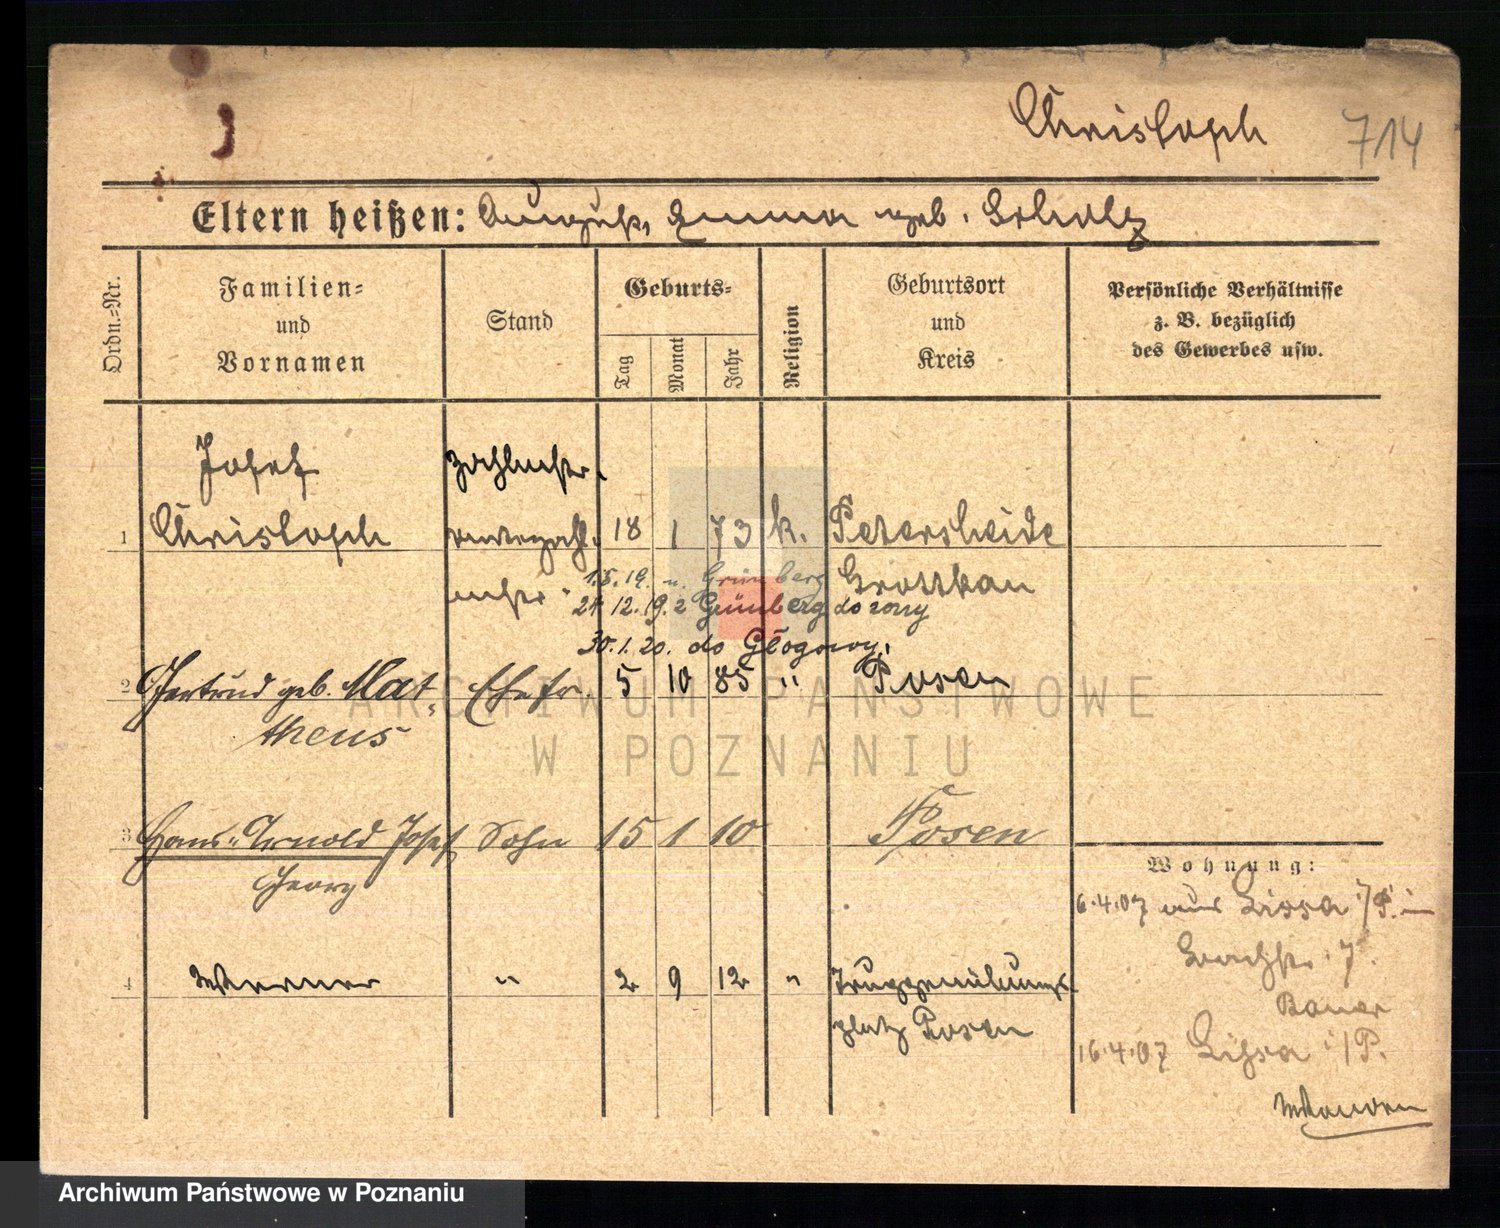 Christoph 714
Eltern heißen: August, Emma geb. Scholz
Ordn.-Nr.
Familien-
und
Vornamen
Stand
Geburts-
Tag
Monat
Jahr
Religion
Geburtsort
und
Kreis
Persönliche Verhältnisse
z. B. bezüglich
des Gewerbes usw.
Josef Zahlmstr.
1 Christoph 18 1 73 k. Petersheide
mstr. Grottkau
1.5.19. n. Grünberg
21.12.19. z Grünberg do
30.1.20. do Głogowy.
2 Gertrud geb. Mat- Ehefr. 5 10 85 " Posen
theus
3 Hans-Arnold Josef Sohn 15 1 10 Posen
Georg
4 Werner " 2 9 12 " Truppenübungs-
platz Posen
Wohnung:
6.4.07 aus Lissa i/P. in
7.
Bauer
16.4.07 Lissa i/P.
ARCHIWUM PAŃSTWOWE
W POZNANIU
Archiwum Państwowe w Poznaniu